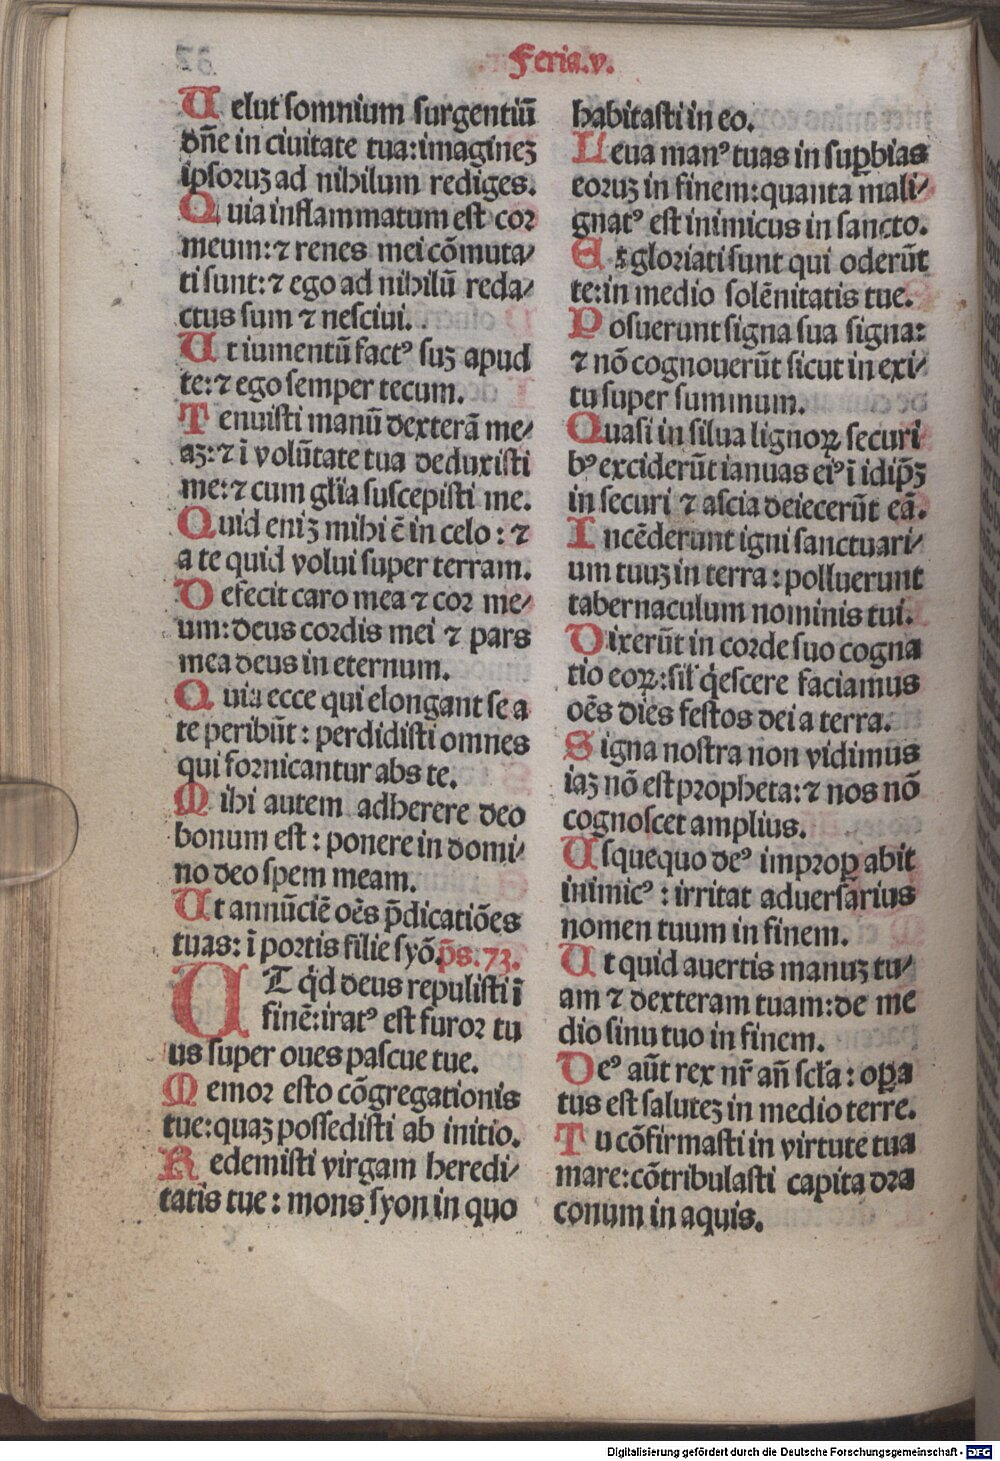 Feria.v.
Uelut somnium surgentiū
dn̄e in ciuitate tua:imagineꝫ
ipsoruꝫ ad nihilum rediges.
Quia inflammatum est cor
meum:⁊ renes mei cōmuta⸗
ti sunt:⁊ ego ad nihilū reda⸗
ctus sum ⁊ nesciui.
Ut iumentū factꝰ suꝫ apud
te:⁊ ego semper tecum.
Tenuisti manū dexterā me⸗
aꝫ:⁊ ī volūtate tua deduxisti
me:⁊ cum glīa suscepisti me.
Quid eniꝫ mihi ē in celo:⁊
a te quid volui super terram.
Defecit caro mea ⁊ cor me⸗
um:deus cordis mei ⁊ pars
mea deus in eternum.
Quia ecce qui elongant se a
te peribūt:perdidisti omnes
qui fornicantur abs te.
Mihi autem adherere deo
bonum est:ponere in domi⸗
no deo spem meam.
Ut annūciē oēs p̄dicatiōes
tuas:ī portis filie syō.p̄s.73.
UT qͥd deus repulisti ī
finē:iratꝰ est furor tu
us super oues pascue tue.
Memor esto cōgregationis
tue:quaꝫ possedisti ab initio.
Redemisti virgam heredi⸗
tatis tue:mons syon in quo
habitasti in eo.
Leua manꝰ tuas in suꝑbias
eoruꝫ in finem:quanta mali⸗
gnatꝰ est inimicus in sancto.
Et gloriati sunt qui oderūt
te:in medio solēnitatis tue.
Posuerunt signa sua signa:
⁊ nō cognouerūt sicut in exi⸗
tu super summum.
Quasi in silua lignoꝝ securi
bꝰ exciderūt ianuas eiꝰ ī idip̄ꝫ
in securi ⁊ ascia deiecerūt eā.
Incēderunt igni sanctuari⸗
um tuuꝫ in terra:polluerunt
tabernaculum nominis tui.
Dixerūt in corde suo cogna
tio eoꝝ:sil' qͥescere faciamus
oēs dies festos dei a terra.
Signa nostra non vidimus
iaꝫ nō est propheta:⁊ nos nō
cognoscet amplius.
Usquequo deꝰ improꝑabit
inimicꝰ:irritat aduersarius
nomen tuum in finem.
Ut quid auertis manuꝫ tu⸗
am ⁊ dexteram tuam:de me
dio sinu tuo in finem.
Deꝰ aūt rex nr̄ an̄ scl'a:oꝑa
tus est saluteꝫ in medio terre.
Tu cōfirmasti in virtute tua
mare:cōtribulasti capita dra
conum in aquis.
Digitalisierung gefördert durch die Deutsche Forschungsgemeinschaft - DFG